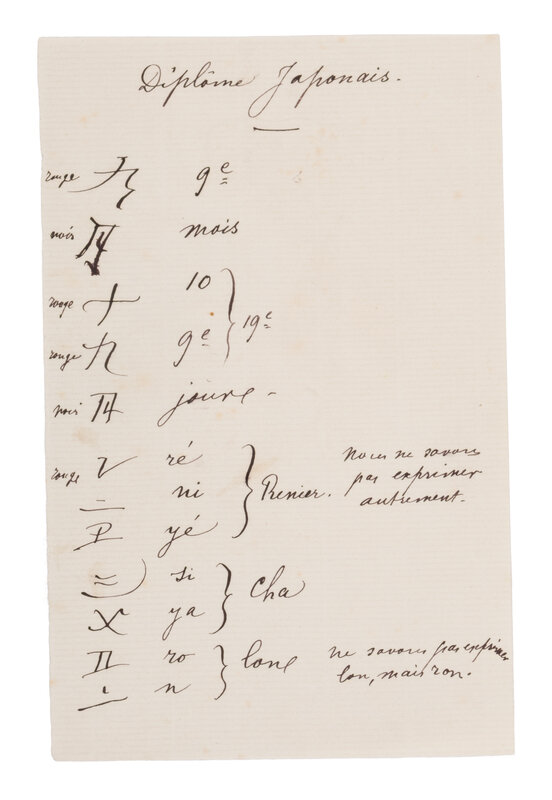 Diplôme Japonais.
rouge 九 9e
noir 月 mois
rouge 十 10
rouge 九 9e } 19e
noir 日 jours -
rouge レ ré
ニ ni } Renier. Nous ne savons pas exprimer autrement.
エ yé
シ si } Cha
ヤ ya
ロ ro } lone ne savons pas exprimer lon, mais ron.
ン n